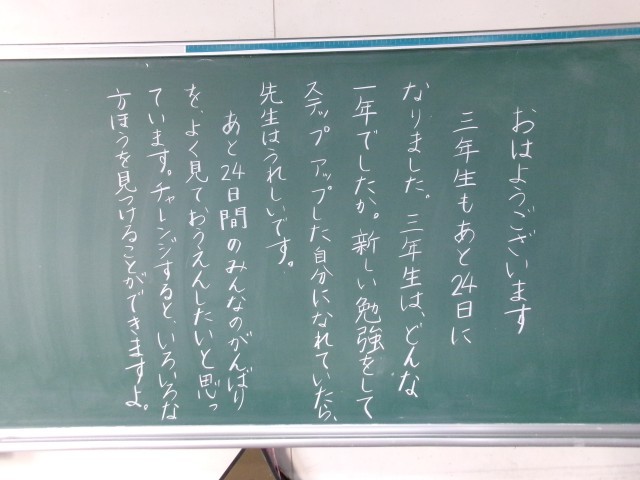 おはようございます
三年生もあと24日に
なりました。三年生は、どんな
一年でしたか。新しい勉強をして
ステップアップした自分になれていたら、
先生はうれしいです。
あと24日間のみんなのがんばり
を、よく見ておうえんしたいと思っ
ています。チャレンジすると、いろいろな
方ほうを見つけることができますよ。